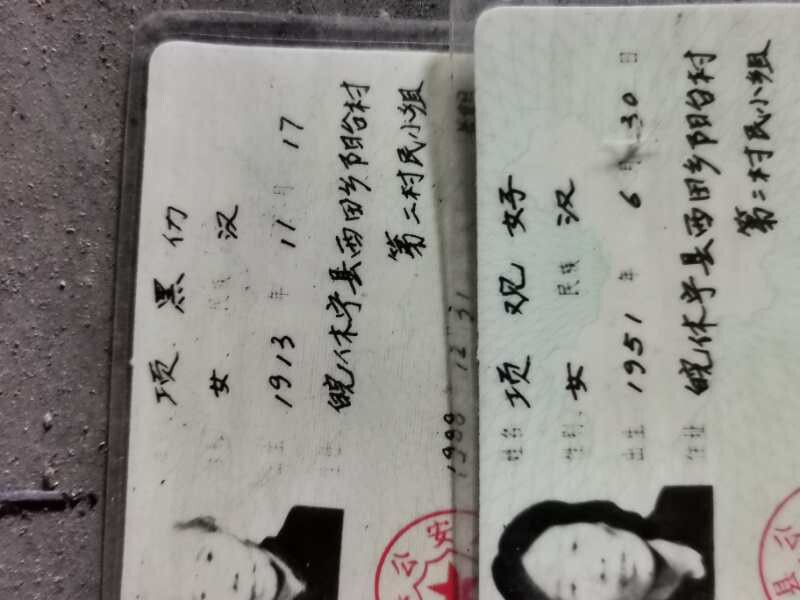 项黑仂
女 民族 汉
1913 年 11 月 17
皖休宁县西田乡阳台村
第二村民小组
1988 12 31
公安
姓名 项观好
性别 女 民族 汉
出生 1951 年 6 月 30 日
住址 皖休宁县西田乡阳台村
第二村民小组
县公